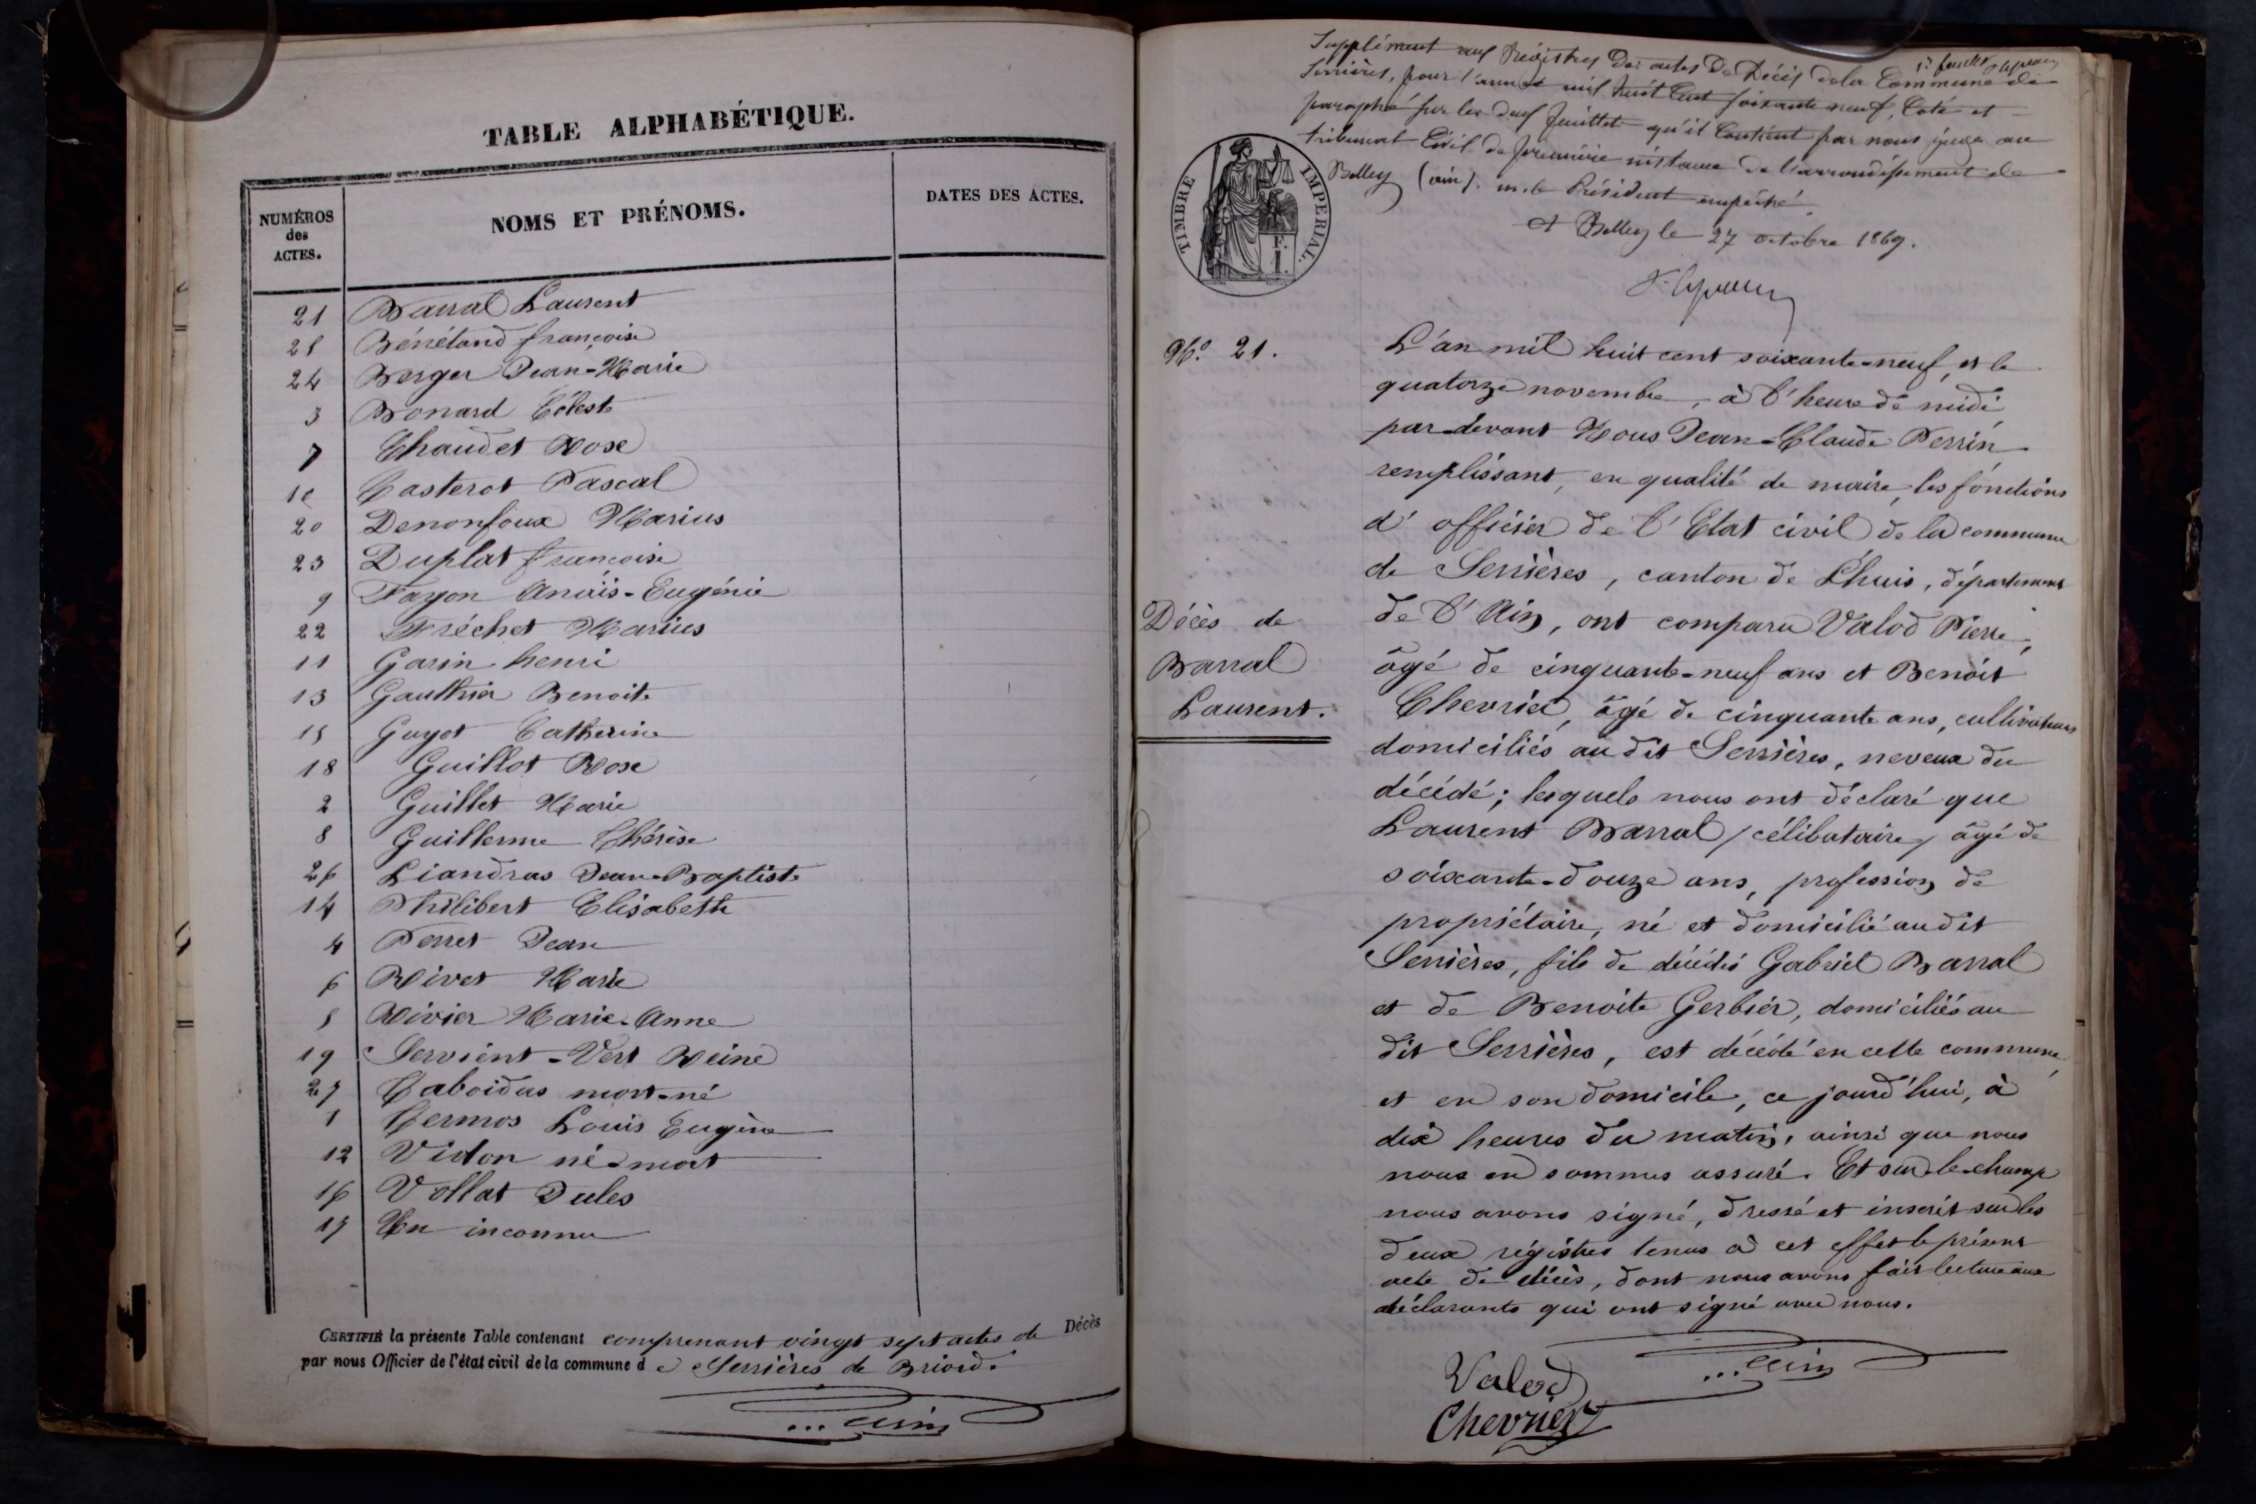 TABLE ALPHABÉTIQUE.
NUMÉROS
des
ACTES.
NOMS ET PRÉNOMS.
DATES DES ACTES.
21 Barral Laurent
25 Bénétand françoise
24 Berger Jean-Marie
3 Bonard Céleste
7 Chaudet Rose
10 Casterot Pascal
20 Denonfoux Marius
23 Duplat françoise
9 Fayon Anaïs-Eugénie
22 Fréchet Marius
11 Garin henri
13 Gauthier Benoite
15 Guyot Catherine
18 Guillot Rose
2 Guillet Marie
8 Guillerme Thérèse
26 Liandras Jean-Baptiste
14 Philibert Elisabeth
4 Perret Jean
6 Rivet Marie
5 Rivier Marie-Anne
19 Servient-Vert Reine
27 Taboidus mort-né
1 Termos Louis Eugène
12 Vidon né-mort
16 Vollat Jules
17 Un inconnu
CERTIFIÉ la présente Table contenant comprenant vingt sept actes de Décès
par nous Officier de l'état civil de la commune d e Serrières de Briord.
Supplément aux Régistres des actes de Décès de la Commune de
Serrières, pour l'année mil huit Cent soixante neuf, Coté et
paraphé sur les deux feuillets qu'il Contient par nous juge au
tribunal Civil de première instance de l'arrondissement de
Belley (ain). m. le Président empêché.
A Belley le 27 octobre 1869.
TIMBRE IMPERIAL.
No. 21.
Décès de
Barral
Laurent.
L'an mil huit cent soixante-neuf, et le
quatorze novembre, à l'heure de midi
par-devant Nous Jean-Claude Perrin
remplissant, en qualité de maire, les fonctions
d'officier de l'Etat civil de la commune
de Serrières, canton de Lhuis, département
de l'Ain, ont comparu Valod Pierre,
âgé de cinquante-neuf ans et Benoit
Chevrier, âgé de cinquante ans, cultivateurs
domiciliés au dit Serrières, neveux du
décédé; lesquels nous ont déclaré que
Laurent Barral / célibataire / âgé de
soixante-douze ans, profession de
propriétaire, né et domicilié au dit
Serrières, fils de décédés Gabriel Barral
et de Benoite Gerbier, domiciliés au
dit Serrières, est décédé en cette commune,
et en son domicile, ce jourd'hui, à
dix heures du matin, ainsi que nous
nous en sommes assuré. Et sur-le-champ
nous avons signé, dressé et inscrit sur les
deux régistres tenus à cet effet le présent
acte de décès, dont nous avons fait lecture aux
déclarants qui ont signé avec nous.
Valod
Chevrier